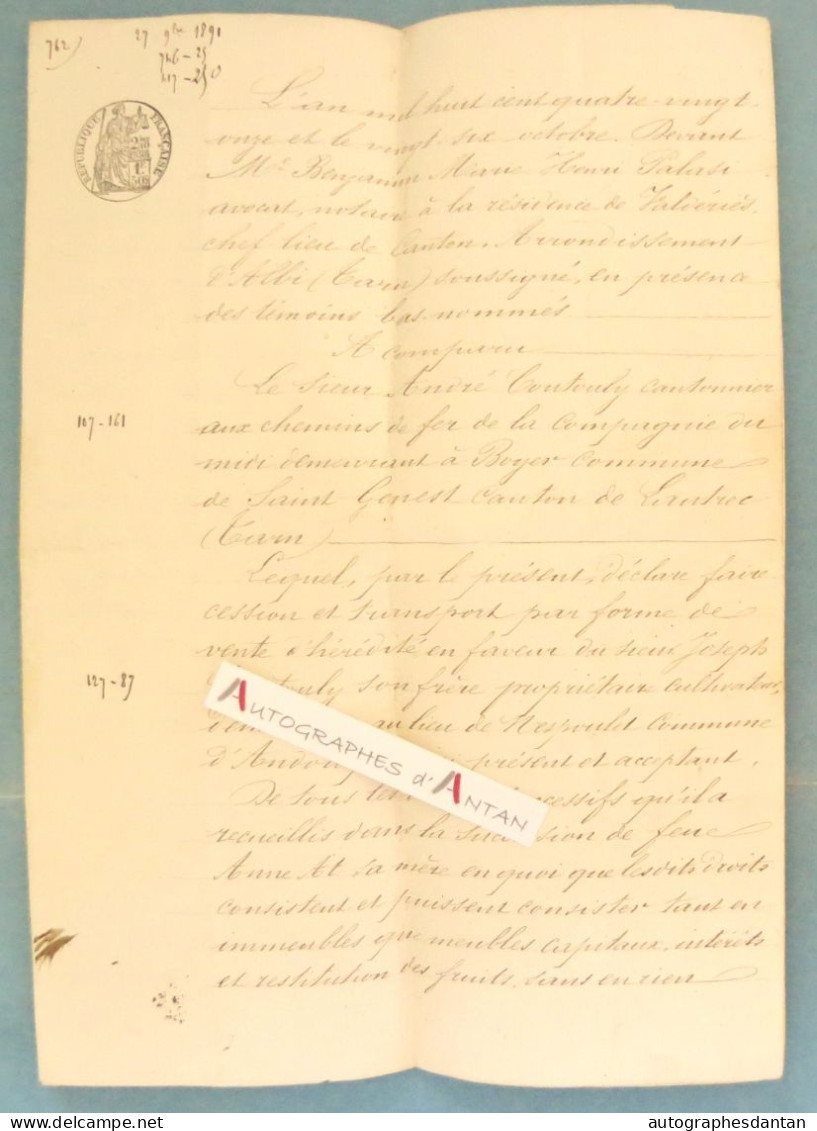 762)
27 9bre 1891
746 - 25
417 - 250
RÉPUBLIQUE FRANÇAISE
L'an mil huit cent quatre-vingt
onze et le vingt-six octobre. Devant
Me Benjamin Marie Henri Galasi
avocat, notaire à la résidence de Valdériès
chef lieu de Canton, Arrondissement
d'Albi (Tarn) soussigné, en présence
des témoins bas-nommés
A comparu
Le sieur André Coutouly cantonnier
107 - 161
aux chemins de fer de la compagnie du
midi demeurant à Boyer commune
de Saint Genest canton de Lautrec
(Tarn)
Lequel, par le présent, déclare faire
cession et transport par forme de
vente d'hérédité en faveur du sieur Joseph
127 - 87
son frère propriétaire cultivateur,
au lieu de Nespoulet commune
présent et acceptant.
De tous les qu'il a
recueillis dans la succession de feue
Anne At sa mère en quoi que lesdits droits
consistent et puissent consister tant en
immeubles que meubles capitaux, intérêts
et restitution des fruits, sans en rien
AUTOGRAPHES d'ANTAN
autographesdantan